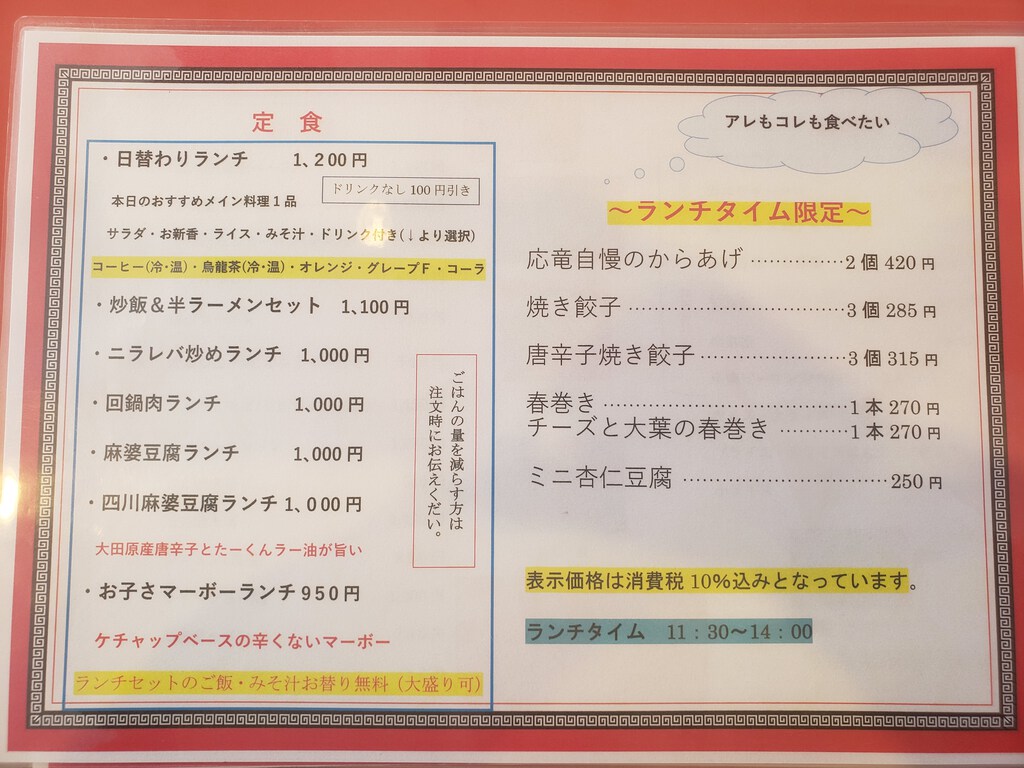 定 食
・日替わりランチ 1、200円
ドリンクなし100円引き
本日のおすすめメイン料理1品
サラダ・お新香・ライス・みそ汁・ドリンク付き(↓より選択)
コーヒー(冷・温)・烏龍茶(冷・温)・オレンジ・グレープF・コーラ
・炒飯&半ラーメンセット 1,100円
・ニラレバ炒めランチ 1,000円
・回鍋肉ランチ 1,000円
・麻婆豆腐ランチ 1,000円
・四川麻婆豆腐ランチ 1、000円
大田原産唐辛子とたーくんラー油が旨い
・お子さマーボーランチ 950円
ケチャップベースの辛くないマーボー
ランチセットのご飯・みそ汁お替り無料(大盛り可)
ごはんの量を減らす方は
注文時にお伝えくだい。
アレもコレも食べたい
～ランチタイム限定～
応竜自慢のからあげ ……………2個 420円
焼き餃子 ………………………………3個 285円
唐辛子焼き餃子 ……………………3個 315円
春巻き …………………………………1本 270円
チーズと大葉の春巻き …………1本 270円
ミニ杏仁豆腐 ……………………………250円
表示価格は消費税10%込みとなっています。
ランチタイム 11：30～14：00